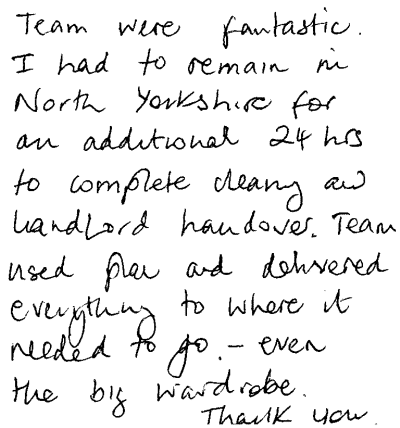 Team were fantastic.
I had to remain in
North Yorkshire for
an additional 24 hrs
to complete cleaning and
landlord handover. Team
used plan and delivered
everything to where it
needed to go. - even
the big wardrobe.
Thank you.